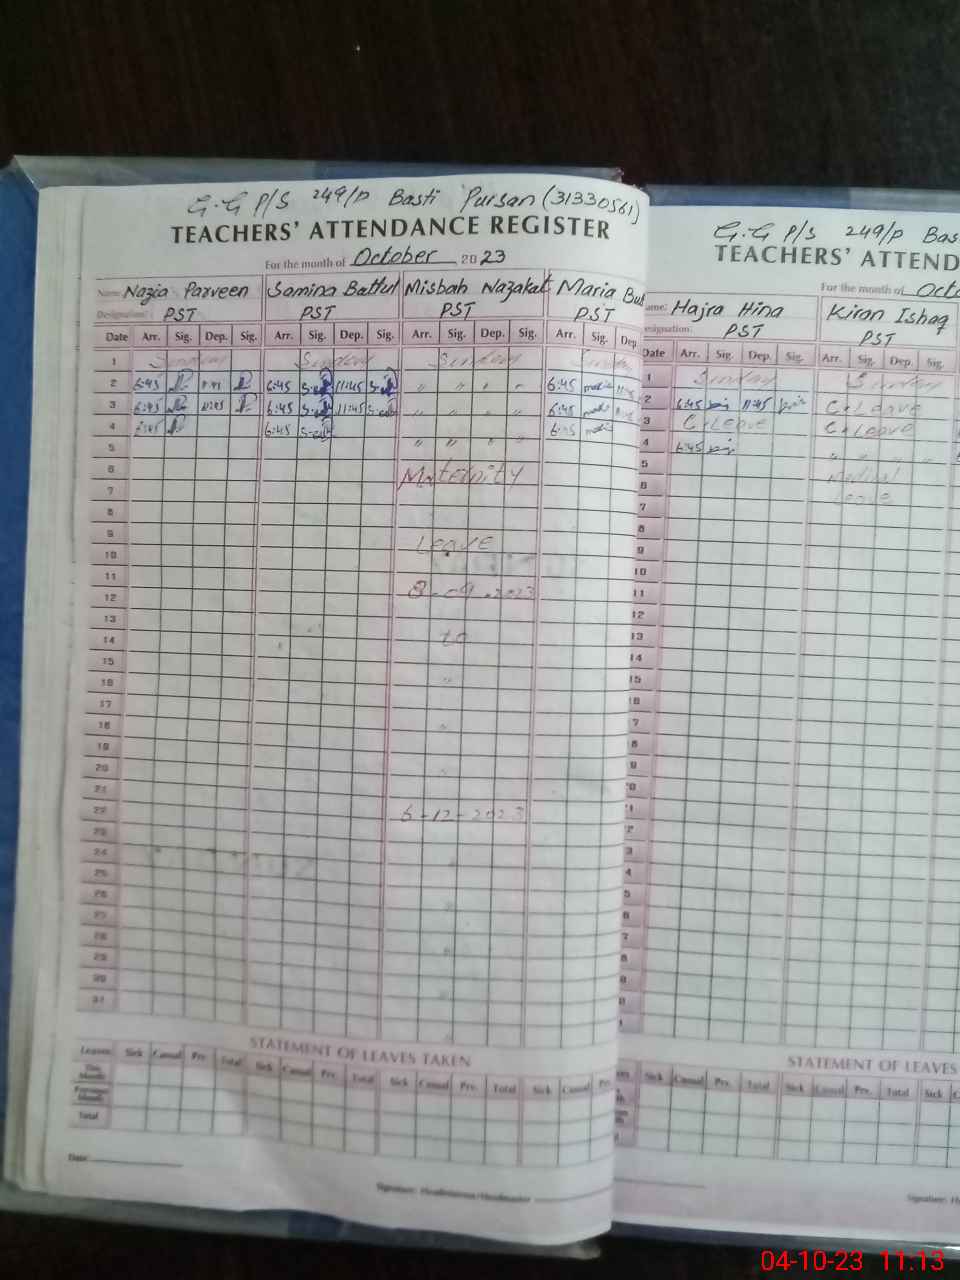 G.G P/S 249/P Basti Pursan (31330561)
TEACHERS' ATTENDANCE REGISTER
For the month of October 2023
Name: Nazia Parveen Samina Battul Misbah Nazakat Maria But
Designation: PST PST PST PST
Date Arr. Sig. Dep. Sig. Arr. Sig. Dep. Sig. Arr. Sig. Dep. Sig. Arr. Sig. Dep.
1 Sunday Sunday Sunday Sunday
2 6:45 6:45 11:45 " " " " 6:45
3 6:45 11:45 6:45 11:45 " " " " 6:45
4 6:45 6:45 " " " " 6:45
5
6 Maternity
7
8
9 Leave
10
11
12 8-09-2023
13
14 to
15
16 "
17
18 "
19
20 "
21
22 6-12-2023
23
24
25
26
27
28
29
30
31
STATEMENT OF LEAVES TAKEN
Leaves Sick Casual Prv. Total Sick Casual Prv. Total Sick Casual Prv. Total Sick Casual Prv.
This Month
Previous Month
Total
Date:
Signature: Headmistress/Headmaster
G.G P/S 249/P Bas
TEACHERS' ATTEND
For the month of Octo
ame: Hajra Hina Kiran Ishaq
esignation: PST PST
Date Arr. Sig. Dep. Sig. Arr. Sig. Dep. Sig.
1 Sunday Sunday
2 6:45 11:45 C-Leave
3 C-Leave C-Leave
4 6:45 " " " "
5 Medical
6 Leave
7
8
9
10
11
12
13
14
15
16
7
8
9
0
1
2
3
4
5
6
7
8
9
0
1
STATEMENT OF LEAVES
Sick Casual Prv. Total Sick Casual Prv. Total Sick C
Signature: H
04-10-23 11:13